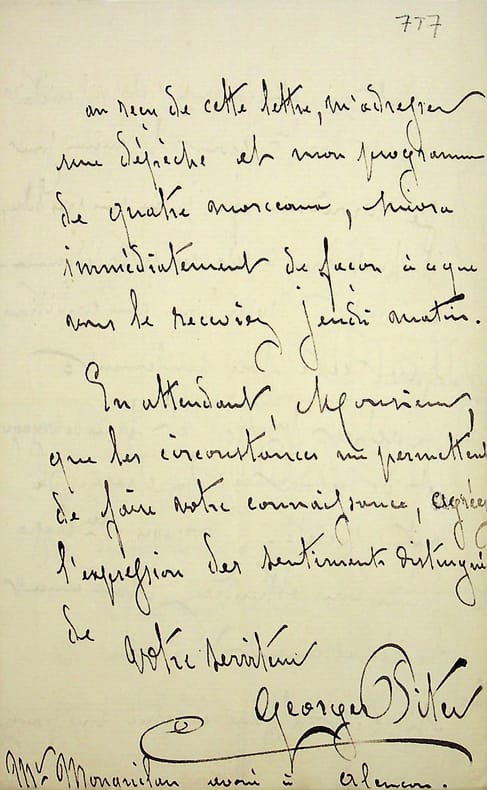 727
au reçu de cette lettre, m'adresser
une dépêche et mon programme
de quatre morceaux, suivra
immédiatement de façon à ce que
vous le receviez jeudi matin.
En attendant, Monsieur,
que les circonstances me permettent
de faire votre connaissance, agréez
l'expression des sentiments distingués
de
votre serviteur
Georges
Mr avoué à Alençon.